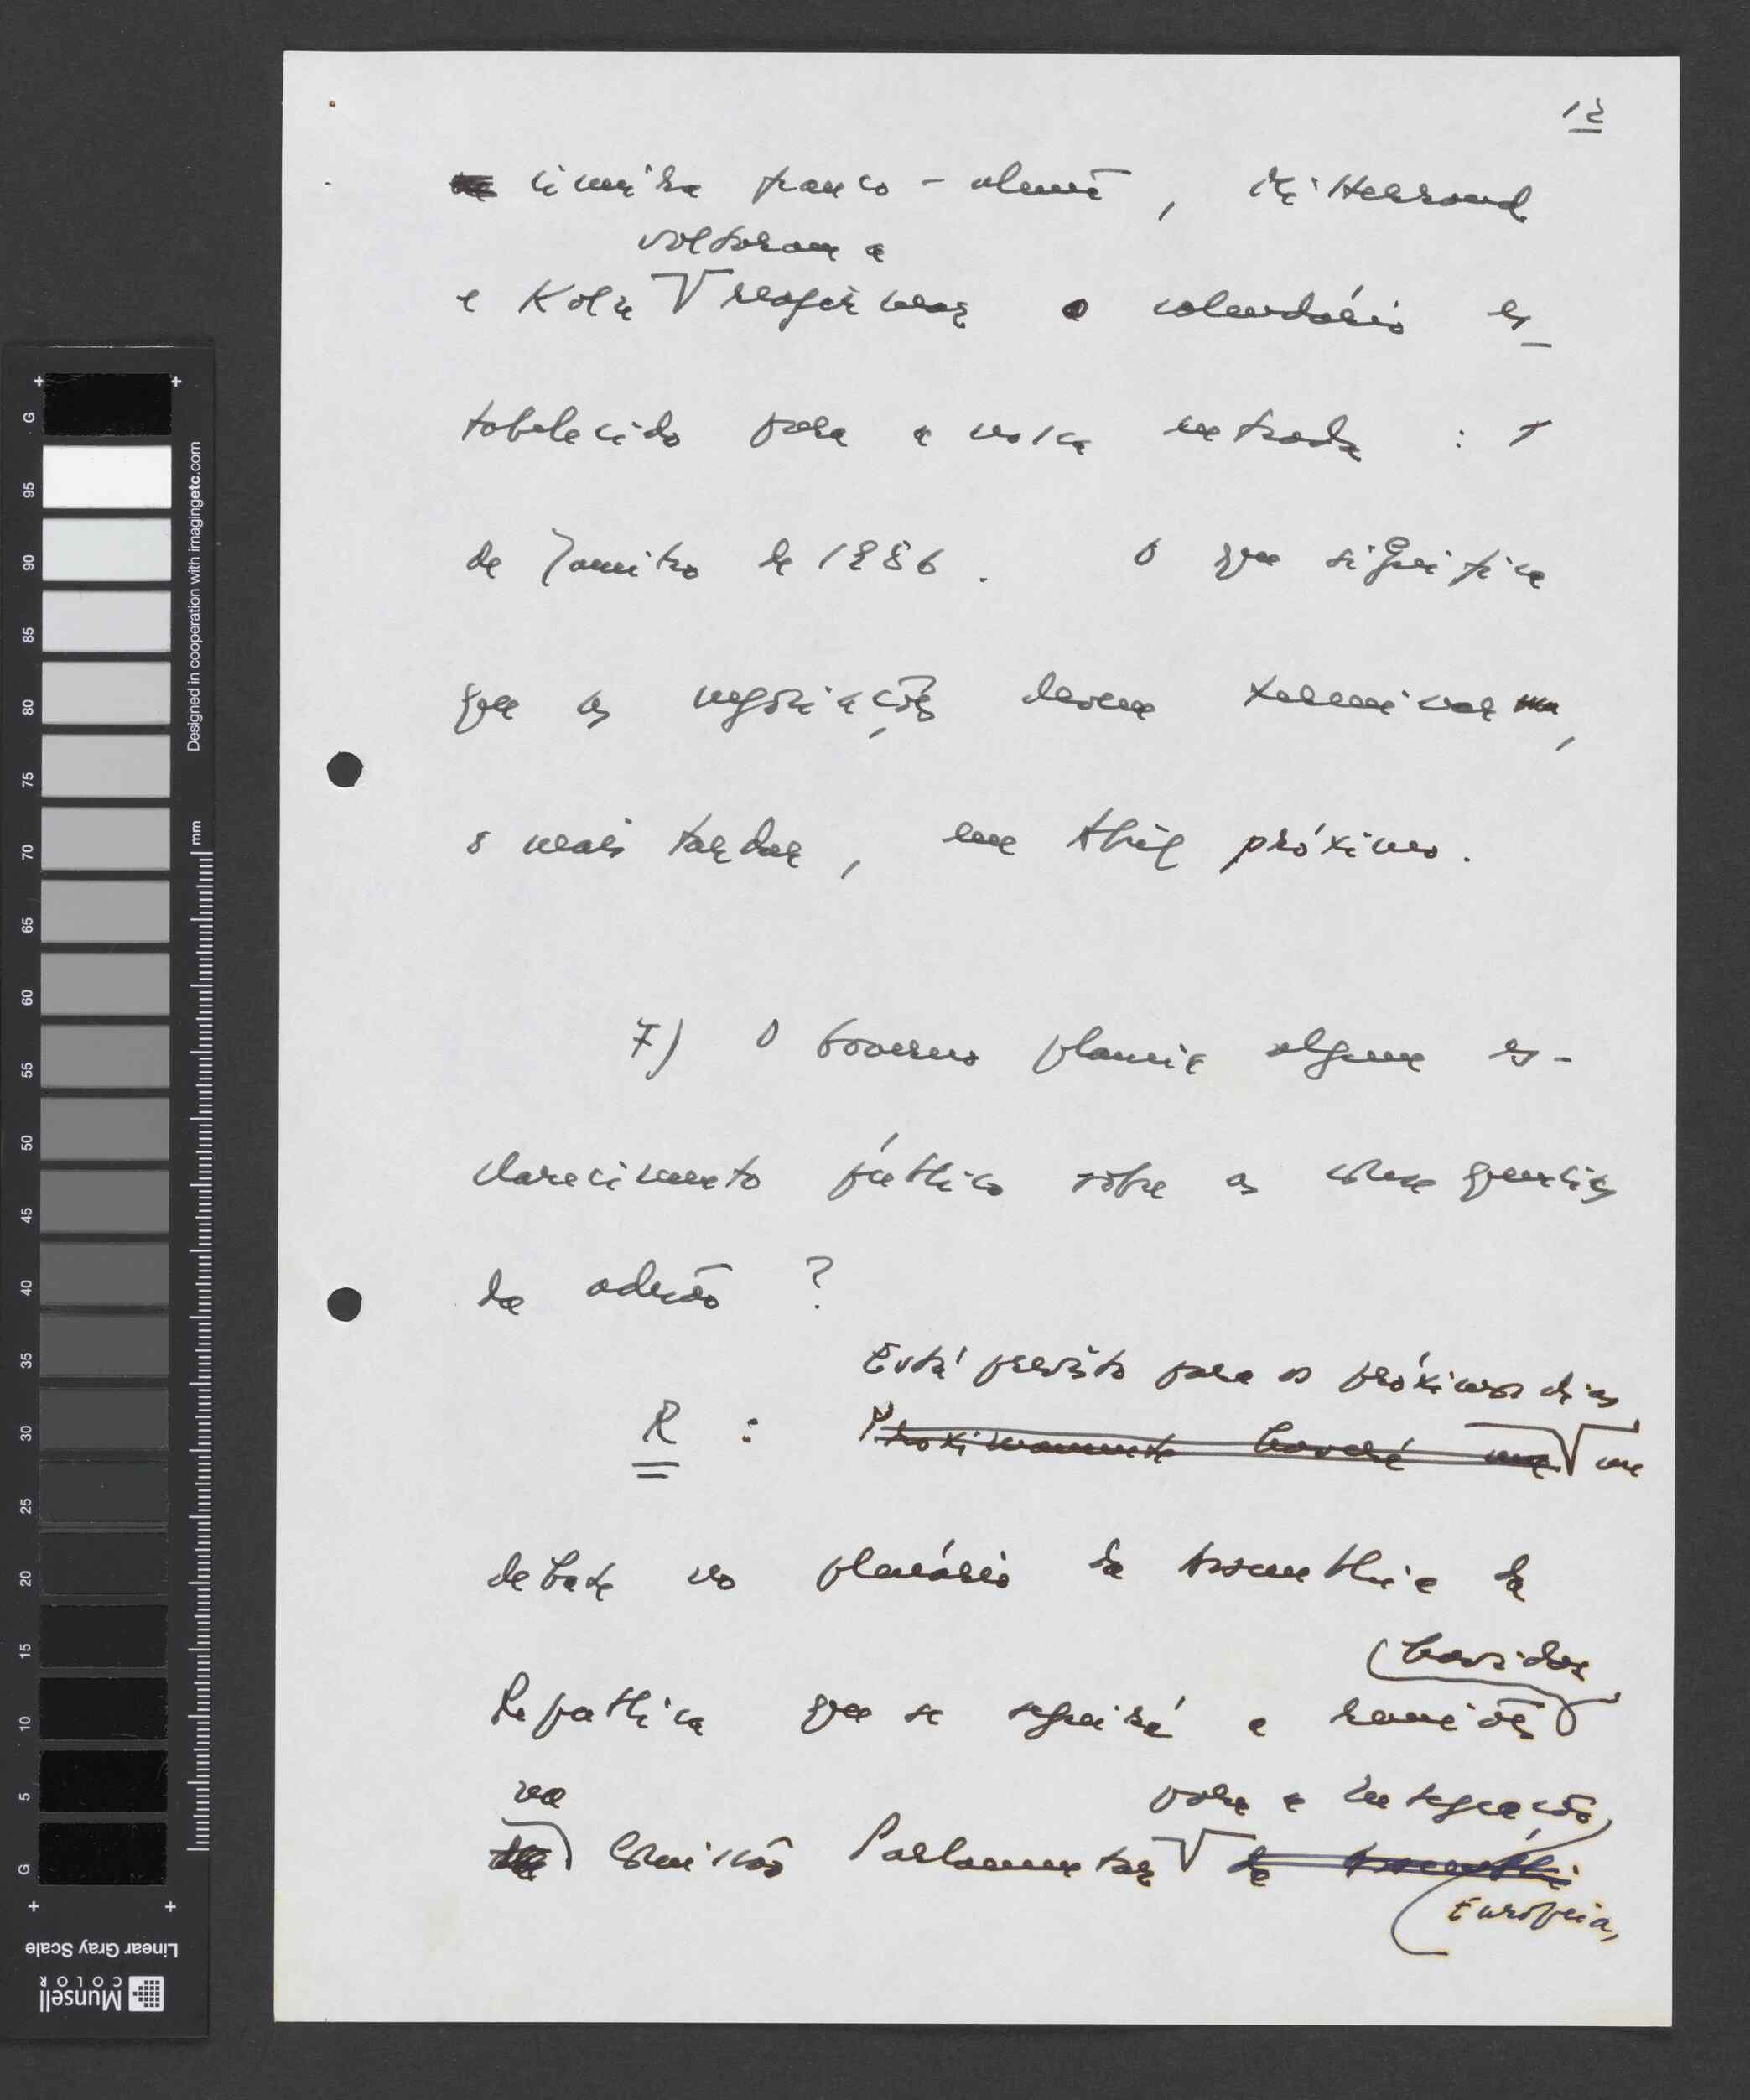 12
cimeira franco-alemã, Mitterrand
voltaram a
e Kohl reafirmar o calendário es-
tabelecido para a nossa entrada : 1
de Janeiro de 1986. O que significa
que as negociações devem terminar,
o mais tardar, em Abril próximo.
7) O Governo planeia algum es-
clarecimento público sobre as consequências
da adesão ?
Está previsto para os próximos dias
R : Proximamente haverá um um
debate no plenário da Assembleia da
República que se seguirá a reuniões
havidas
na para a integração
Comissão Parlamentar da Assemblei
Europeia,
G 95 90 85 80 75 70 65 60 55 50 45 40 35 30 25 20 15 10 5 G
mm
Designed in cooperation with imagingetc.com
Linear Gray Scale
Munsell
COLOR